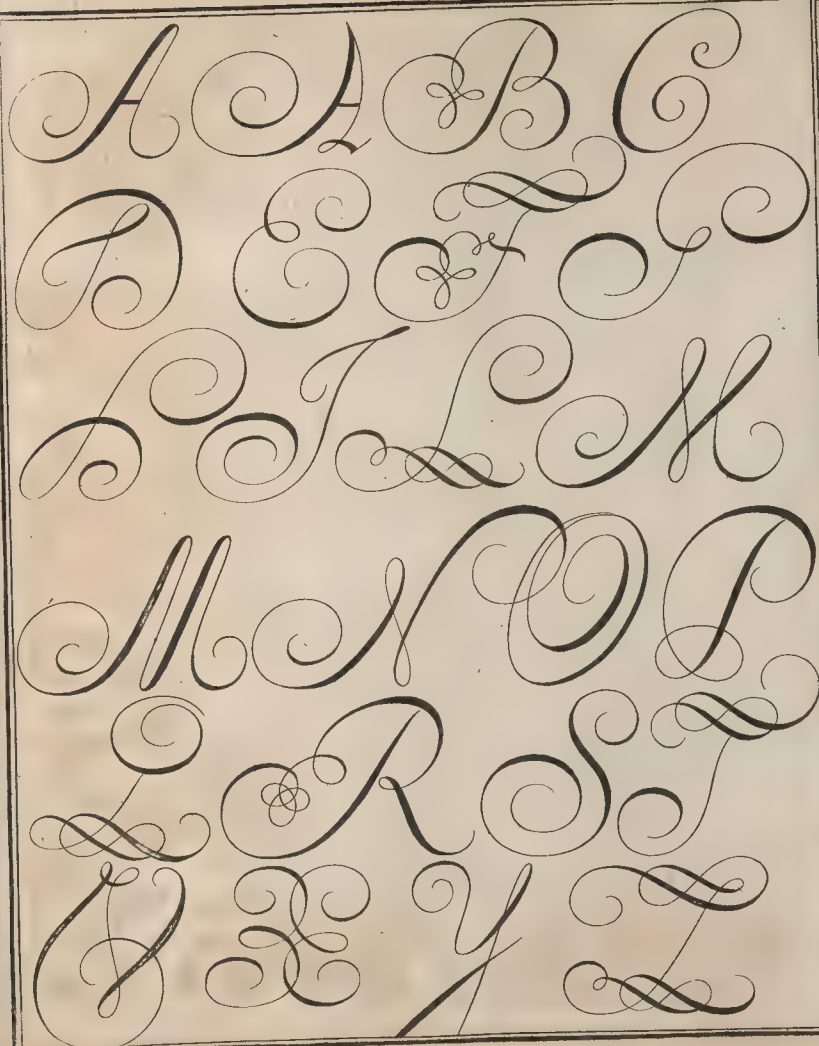 A A B C
D E F G
H I L M
M N O P
Q R S T
V X Y Z